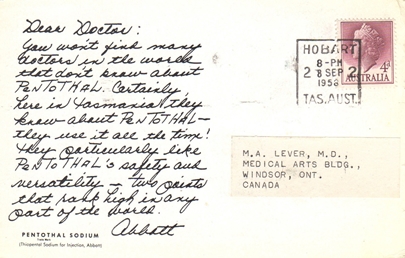 Dear Doctor:
You won't find many
doctors in the world
that don't know about
PENTOTHAL. Certainly,
here in Tasmania they
know about PENTOTHAL—
they use it all the time!
They particularly like
PENTOTHAL's safety and
versatility — two points
that rank high in any
part of the world.
Abbott
PENTOTHAL SODIUM
(Thiopental Sodium for Injection, Abbott)
HOBART
8-PM
2 8 SEP 2
1958
TAS. AUST.
4d
AUSTRALIA
M.A. LEVER, M.D.,
MEDICAL ARTS BLDG.,
WINDSOR, ONT.
CANADA